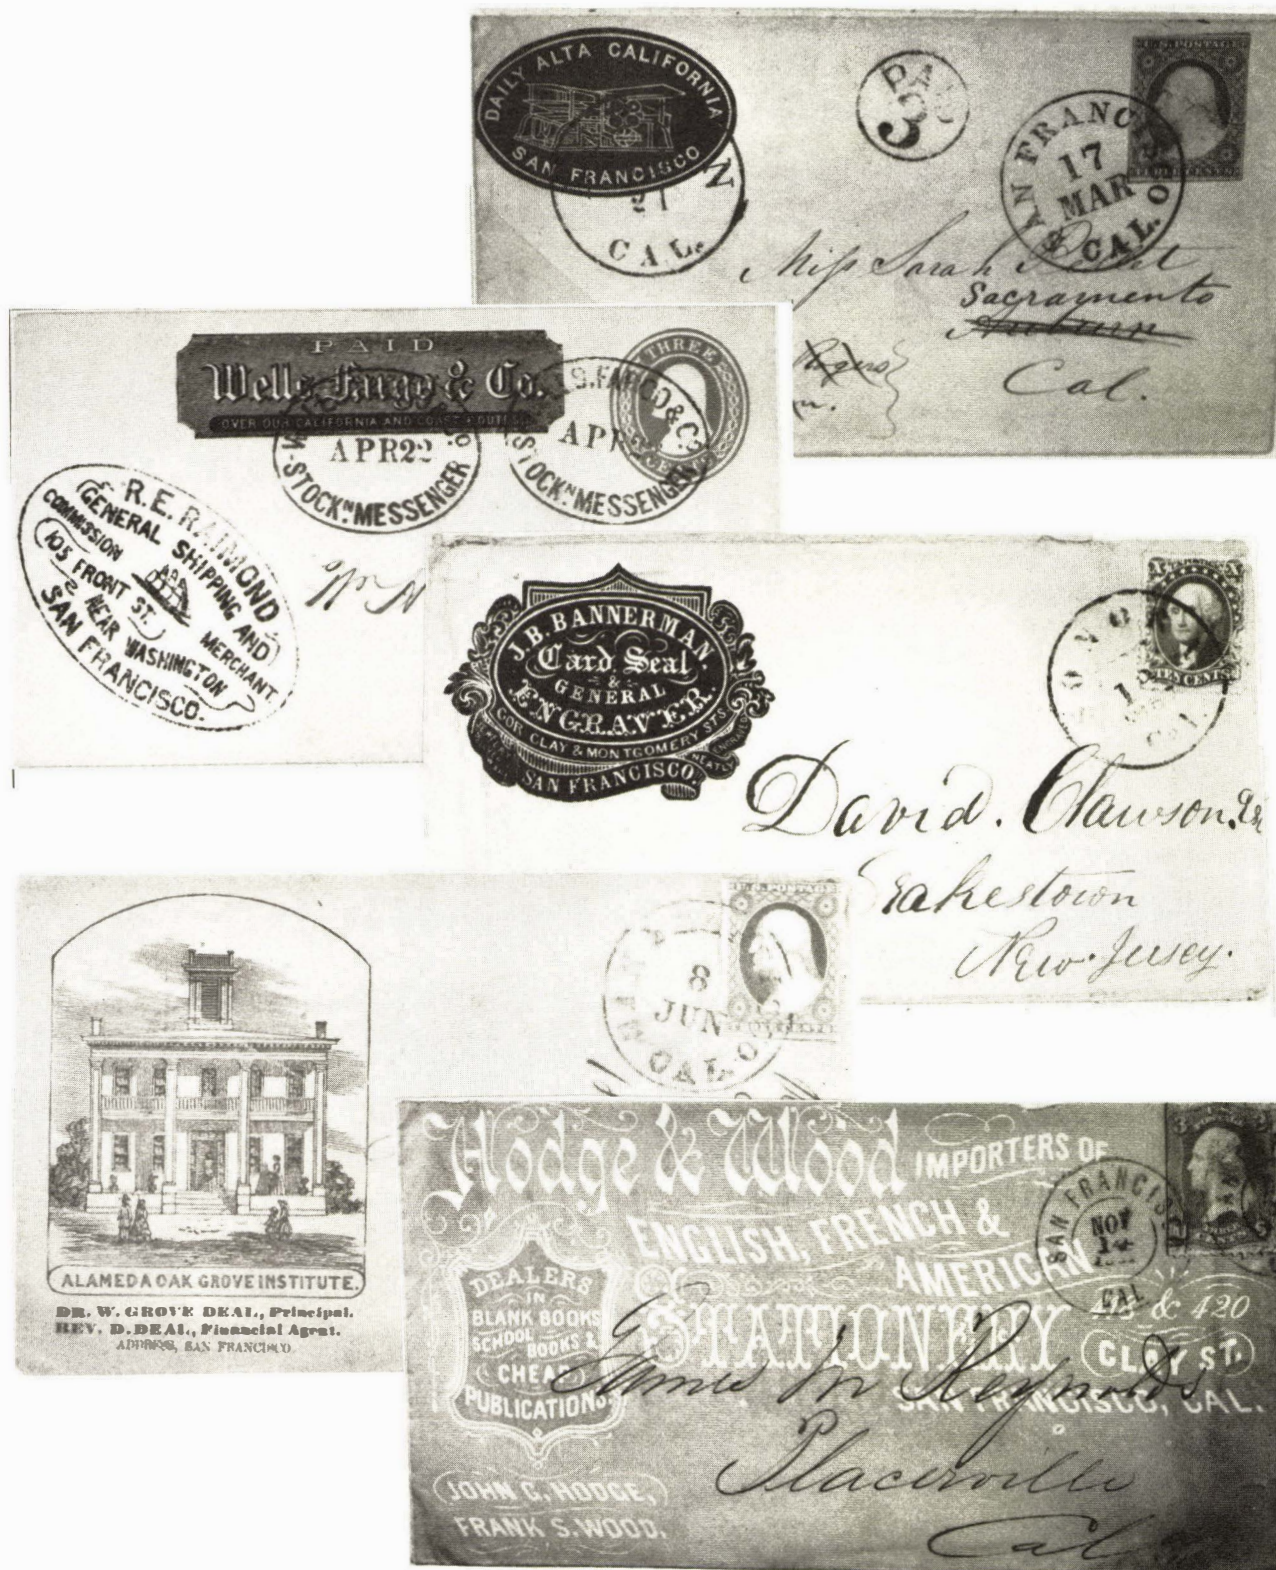 DAILY ALTA CALIFORNIA
SAN FRANCISCO
27
CAL.
PAID
3
SAN FRANCISCO
17
MAR
CAL.
U.S. POSTAGE
THREE CENTS
Miss Sarah
Sacramento
Auburn
Cal.
PAID
Wells, Fargo & Co.
OVER OUR CALIFORNIA AND COAST ROUTES
APR 22
STOCKN. MESSENGER
S. FARGO & CO.
APR 22
STOCKN. MESSENGER
THREE
R.E. RAIMOND
GENERAL SHIPPING AND
COMMISSION MERCHANT.
105 FRONT ST.
NEAR WASHINGTON
SAN FRANCISCO.
J.B. BANNERMAN.
Card Seal
&
GENERAL
ENGRAVER.
COR CLAY & MONTGOMERY STS
SAN FRANCISCO.
TEN CENTS
CAL
David. Clawson.
New Jersey.
ALAMEDA OAK GROVE INSTITUTE.
DR. W. GROVE DEAL, Principal.
REV. D. DEAL, Financial Agent.
ADDRESS, SAN FRANCISCO
U.S. POSTAGE
8
JUN
CAL.
Hodge & Wood IMPORTERS OF
ENGLISH, FRENCH &
AMERICAN
STATIONERY
& 420
CLAY ST.
SAN FRANCISCO, CAL.
DEALERS
IN
BLANK BOOKS
SCHOOL BOOKS &
CHEAP
PUBLICATIONS.
JOHN G. HODGE,
FRANK S. WOOD.
SAN FRANCISCO
NOV
14
CAL
James M Reynolds
Placerville
Cal